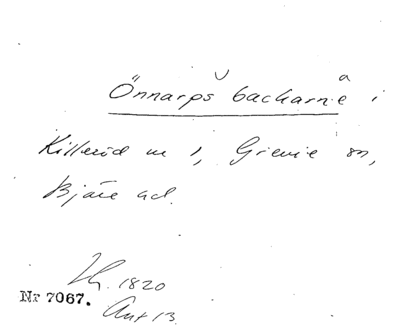 Önnarps backarne i
Killeröd nr 1, Grevie sn,
Bjäre hd.
1820
Nr 7067.
Akt 13